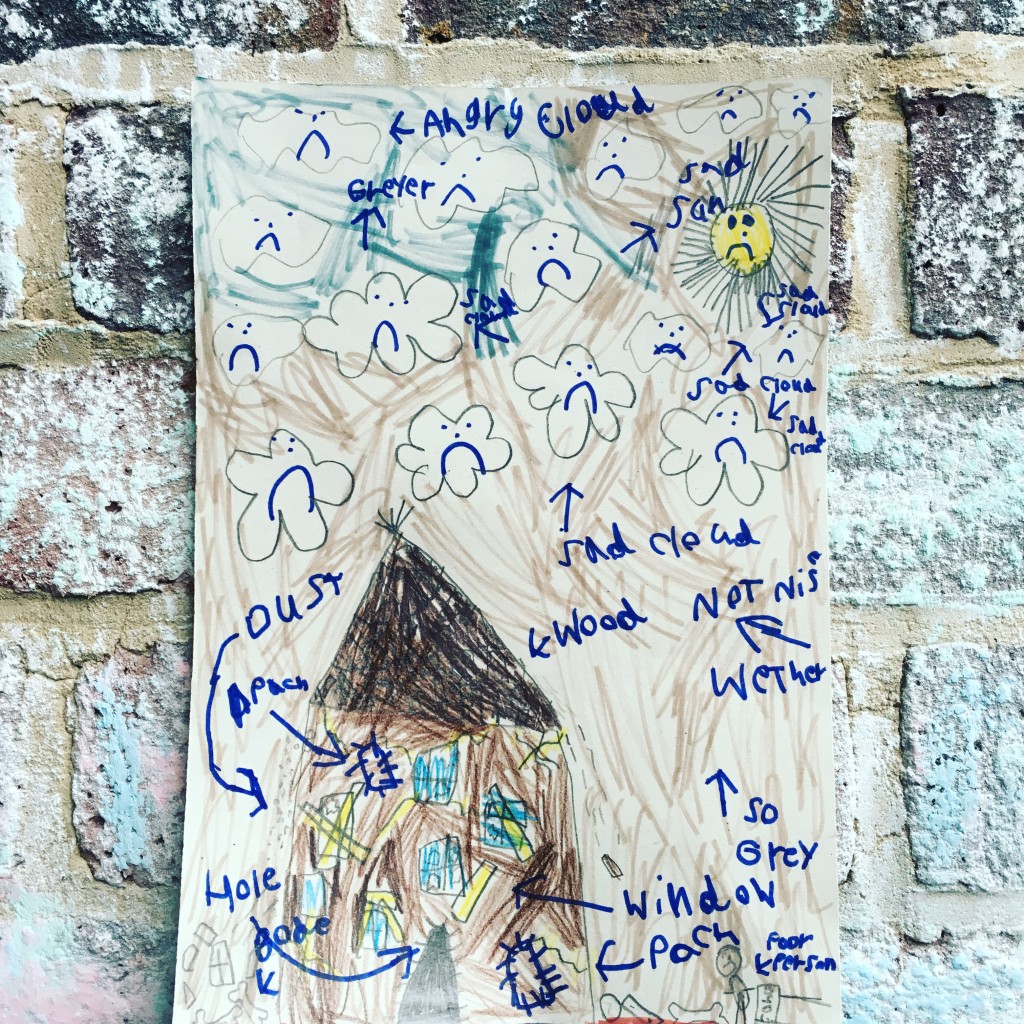 Angry Cloud
Greyer
sad
sun
sad
cloud
sad
cloud
sad cloud
sad
clod
sad cloud
DUST
Wood
NOT Nise
Wether
A Pach
so
Grey
Hole
Window
Pach
Poor
Person